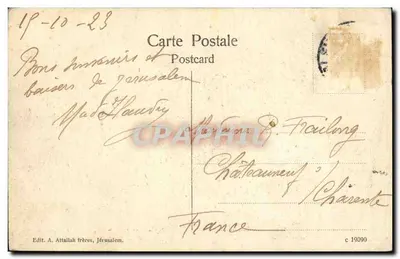 15-10-23
Carte Postale
Postcard
Bons souvenirs et
baisers de Jerusalem
Mad
CPAPHIL
Madame
Châteauneuf s/
Charente
France
Edit. A. Attallah frères, Jérusalem.
c 19099